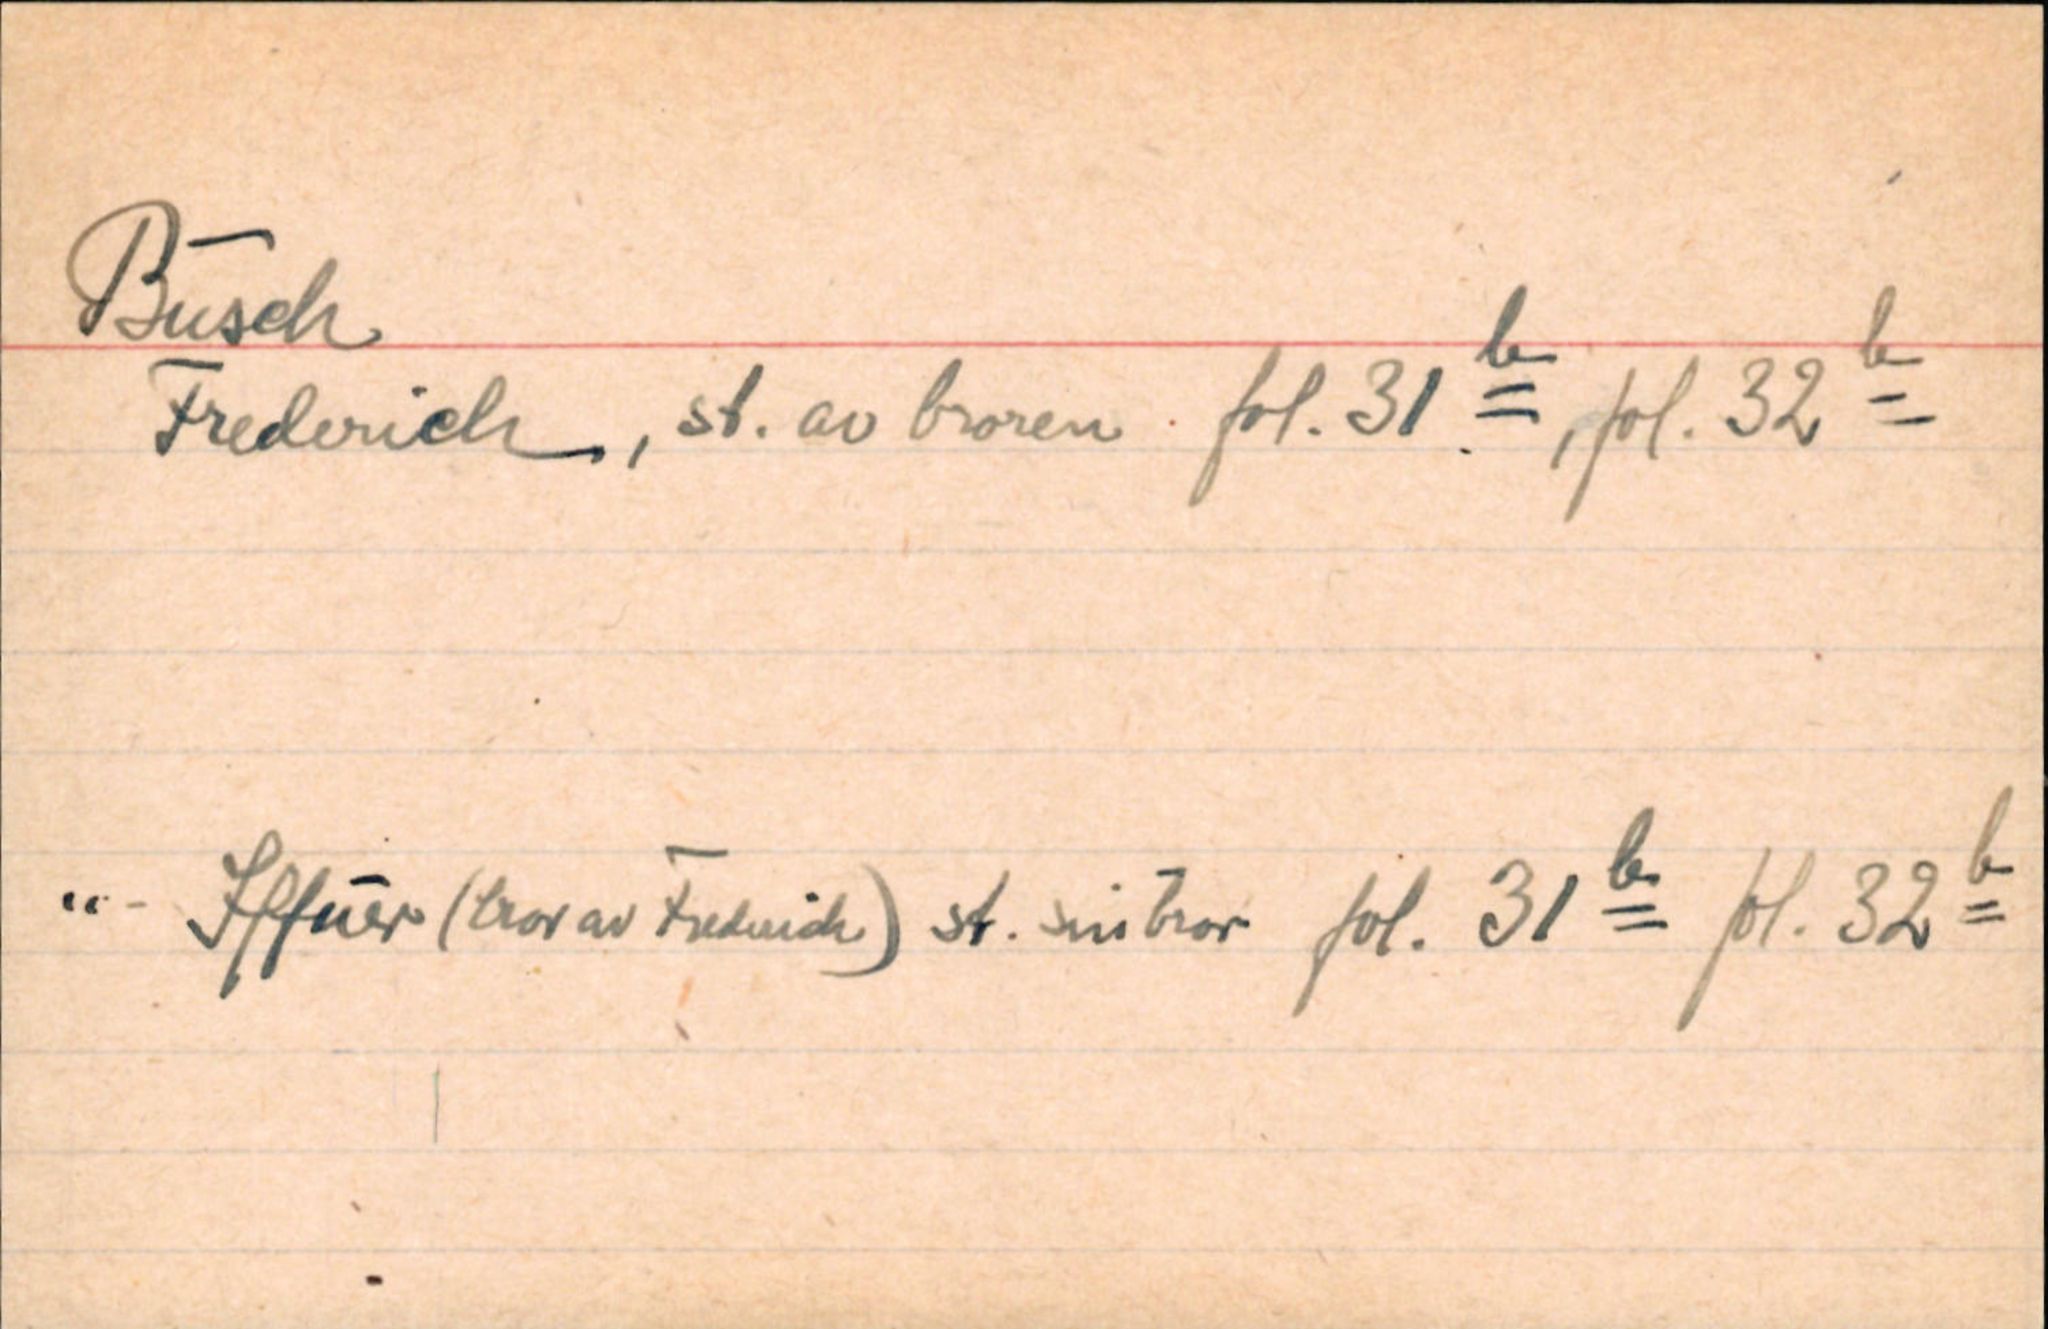 Busch
Frederich, st. av broren fol. 31 b, fol. 32 b
"- Iffuer (bror av Frederich) st. sin bror fol. 31 b fol. 32 b